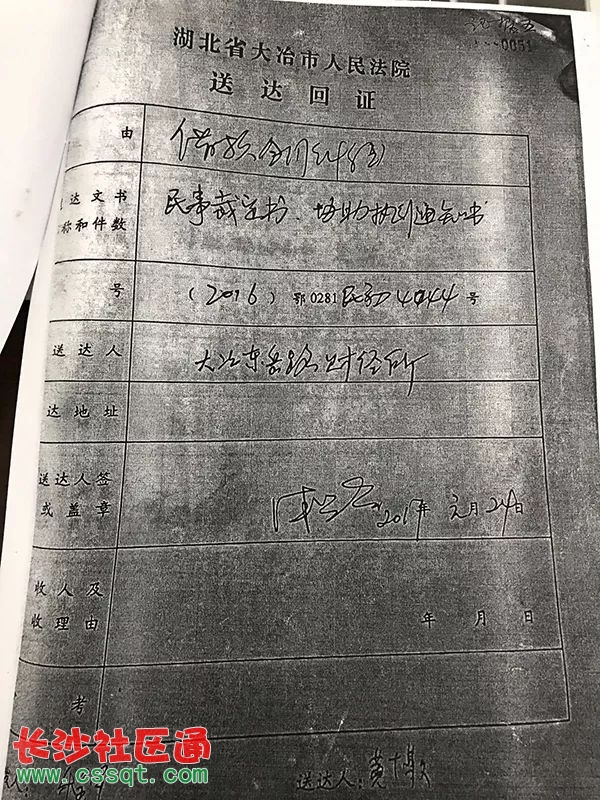 0051
湖北省大冶市人民法院
送达回证
由
借款合同纠纷
达文书
称和件数
民事裁定书、协助执行通知书
号
(2016)鄂0281民初4044号
送达人
大冶东岳路财经所
达地址
送达人签
或盖章
2017年元月24日
收人及
收理由
年 月 日
考
送达人:黄
长沙社区通
www.cssqt.com